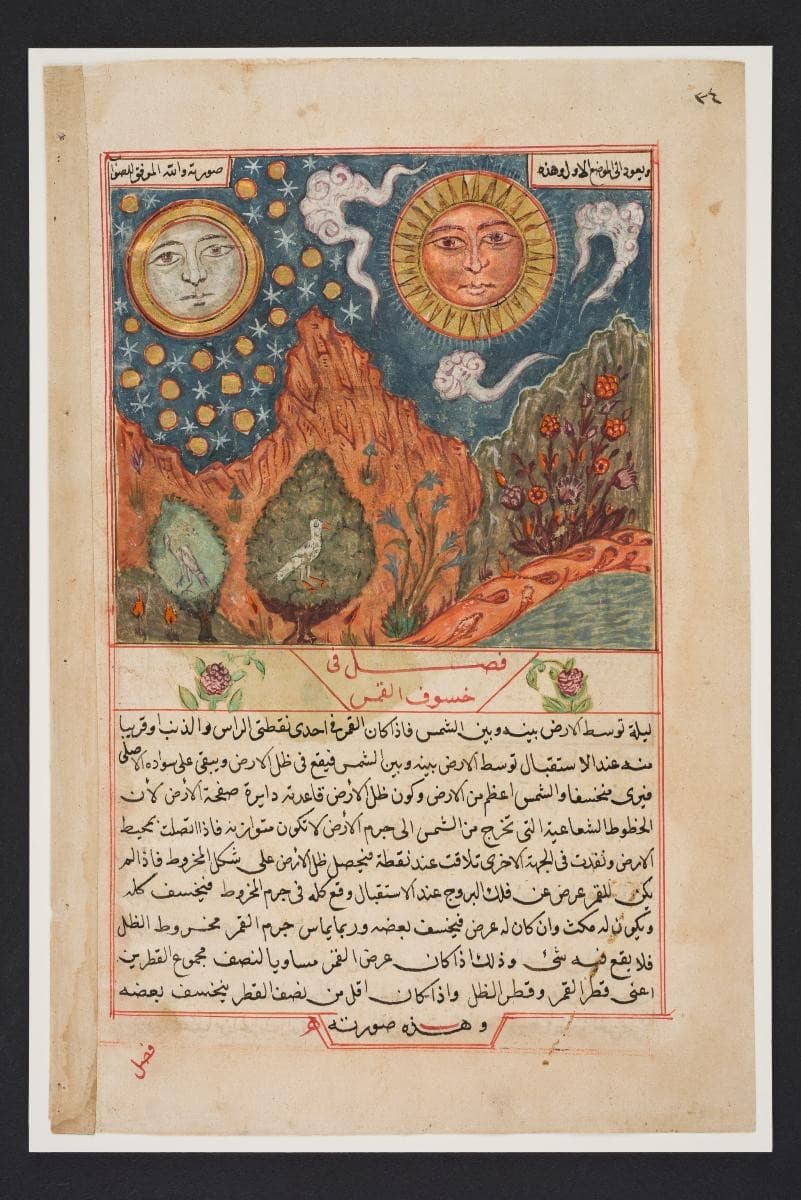 ٣٤
ويعود الى الموضع الاول وهذه
صورته والله الموفق للصواب
فصل فى
خسوف القمر
ليلة توسط الارض بينه وبين الشمس فاذا كان القمر فى احدى نقطتى الراس والذنب او قريبا
منه عند الاستقبال توسط الارض بينه وبين الشمس فيقع فى ظل الارض ويبقى على سواده الاصلى
فيرى منخسفا والشمس اعظم من الارض وكون ظل الارض قاعدته دايرة صفحة الارض لان
الخطوط الشعاعية التى تخرج من الشمس الى جرم الارض لا تكون متوازيه فاذا اتصلت بمحيط
الارض ونفذت فى الجهة الاخرى تلاقت عند نقطة فيحصل ظل الارض على شكل المخروط فاذا لم
يكن للقمر عرض عن فلك البروج عند الاستقبال وقع كله فى جرم المخروط فيخسف كله
ويكون له مكث وان كان له عرض فيخسف بعضه وربما يماس جرم القمر مخروط الظل
فلا يقع فيه شئ وذلك اذا كان عرض القمر مساويا لنصف مجموع القطرين
اعنى قطر القمر وقطر الظل واذا كان اقل من نصف القطر ينخسف بعضه
وهذه صورته
فصل